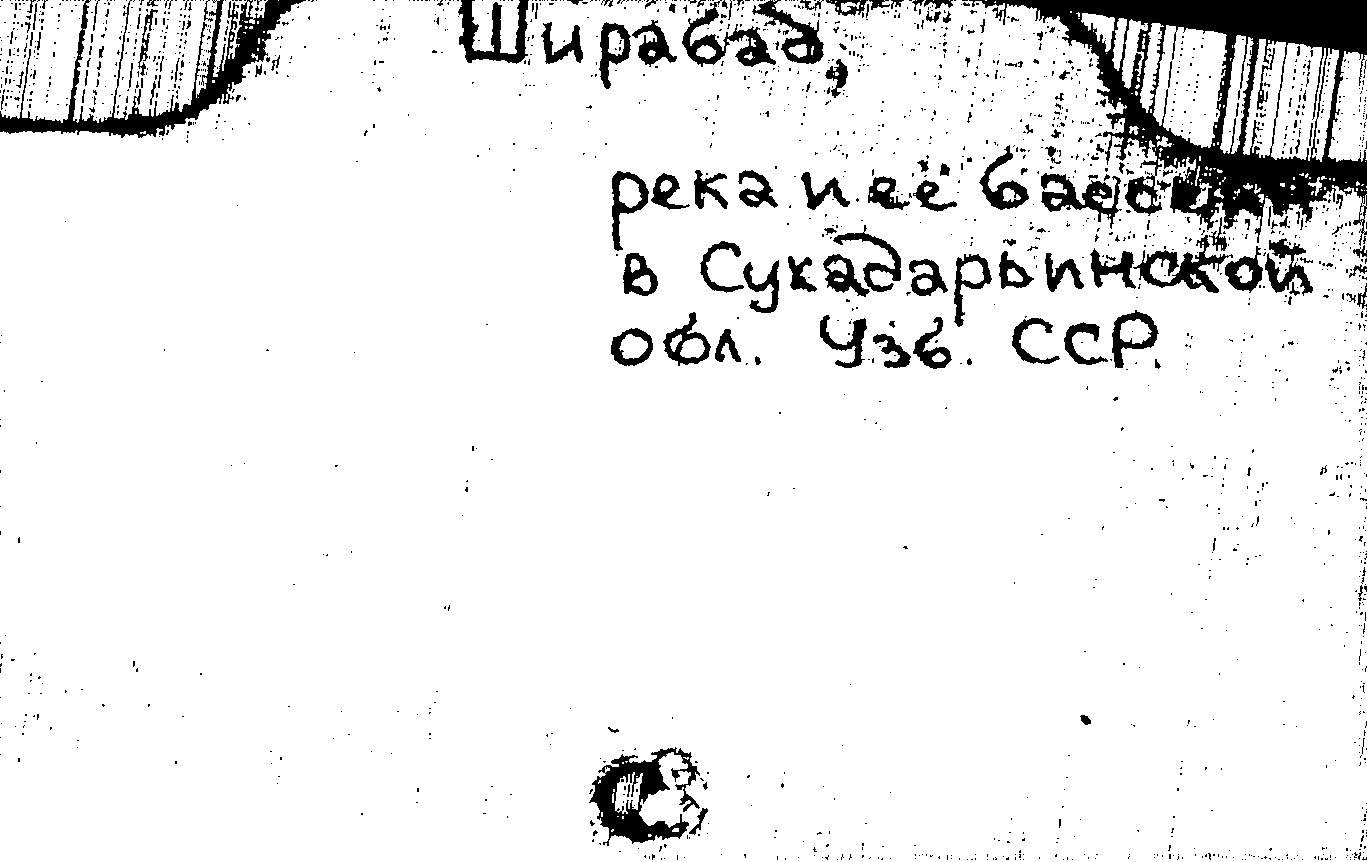 Ширабад,
река и её бассейн
в Сукадарьинской
обл. Узб. ССР.